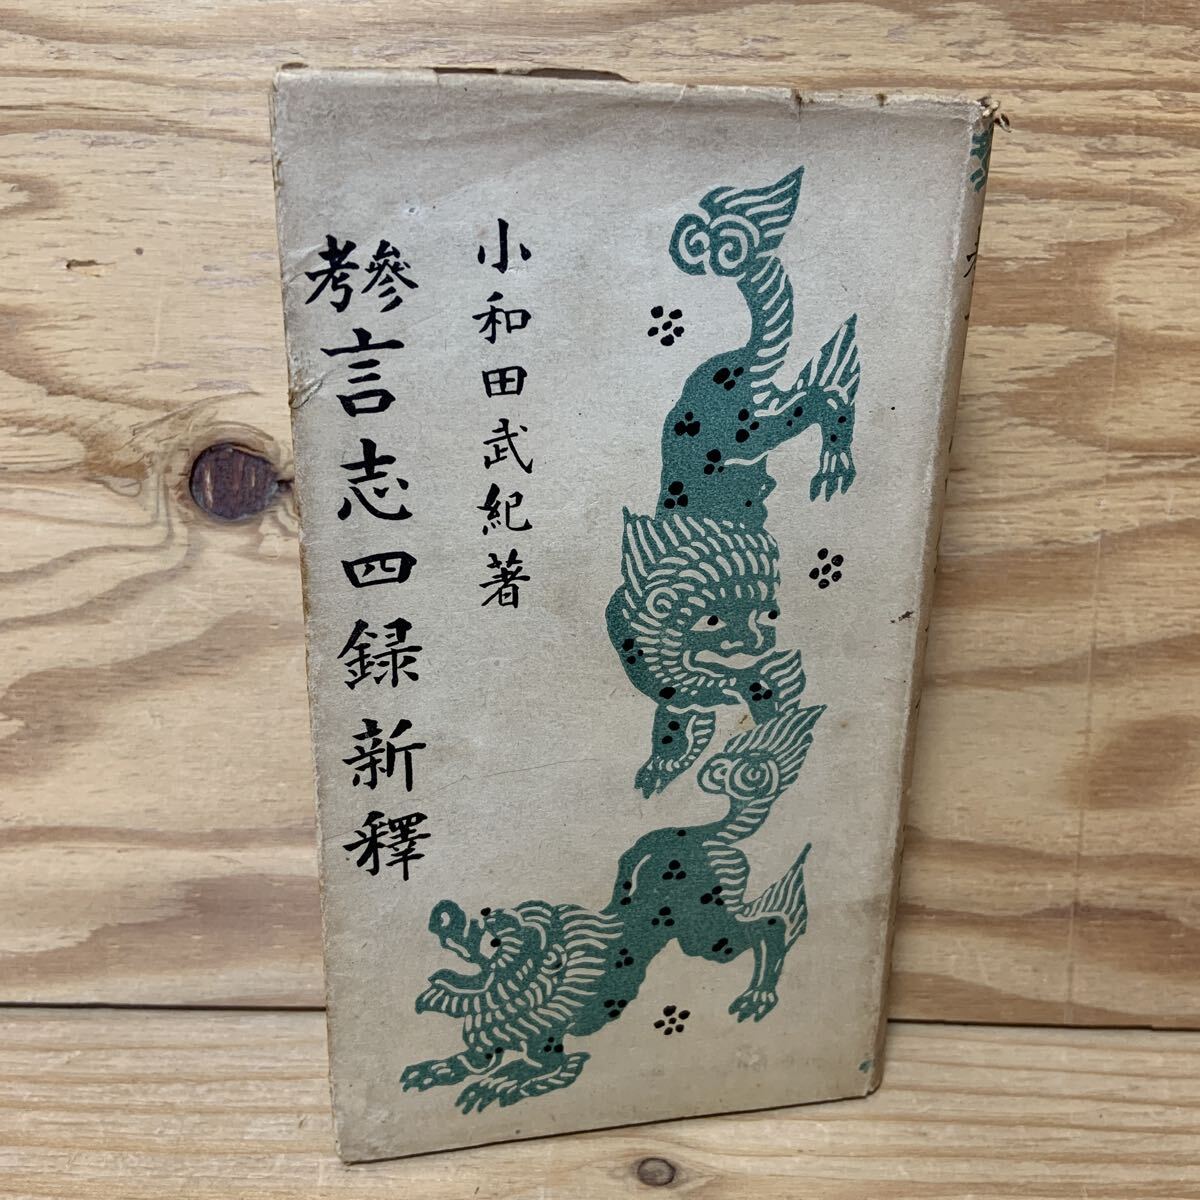 小和田武紀著
參考言志四録新釋